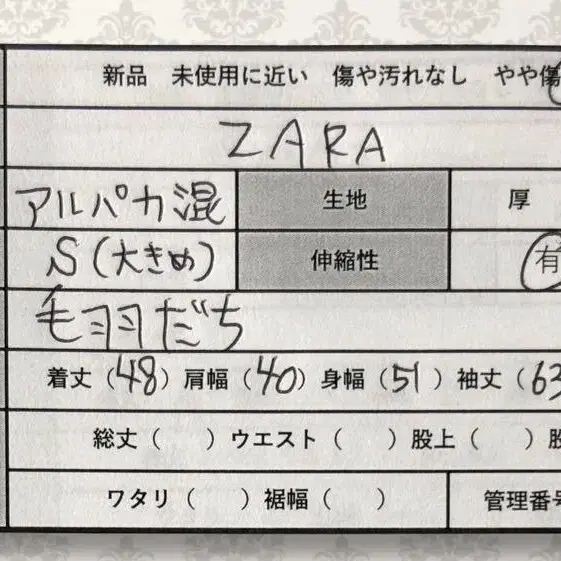 新品 未使用に近い 傷や汚れなし やや傷
ZARA
アルパカ混 生地 厚
S(大きめ) 伸縮性 有
毛羽だち
着丈(48)肩幅(40)身幅(51)袖丈(63
総丈( )ウエスト( )股上( )股
ワタリ( )裾幅( ) 管理番号